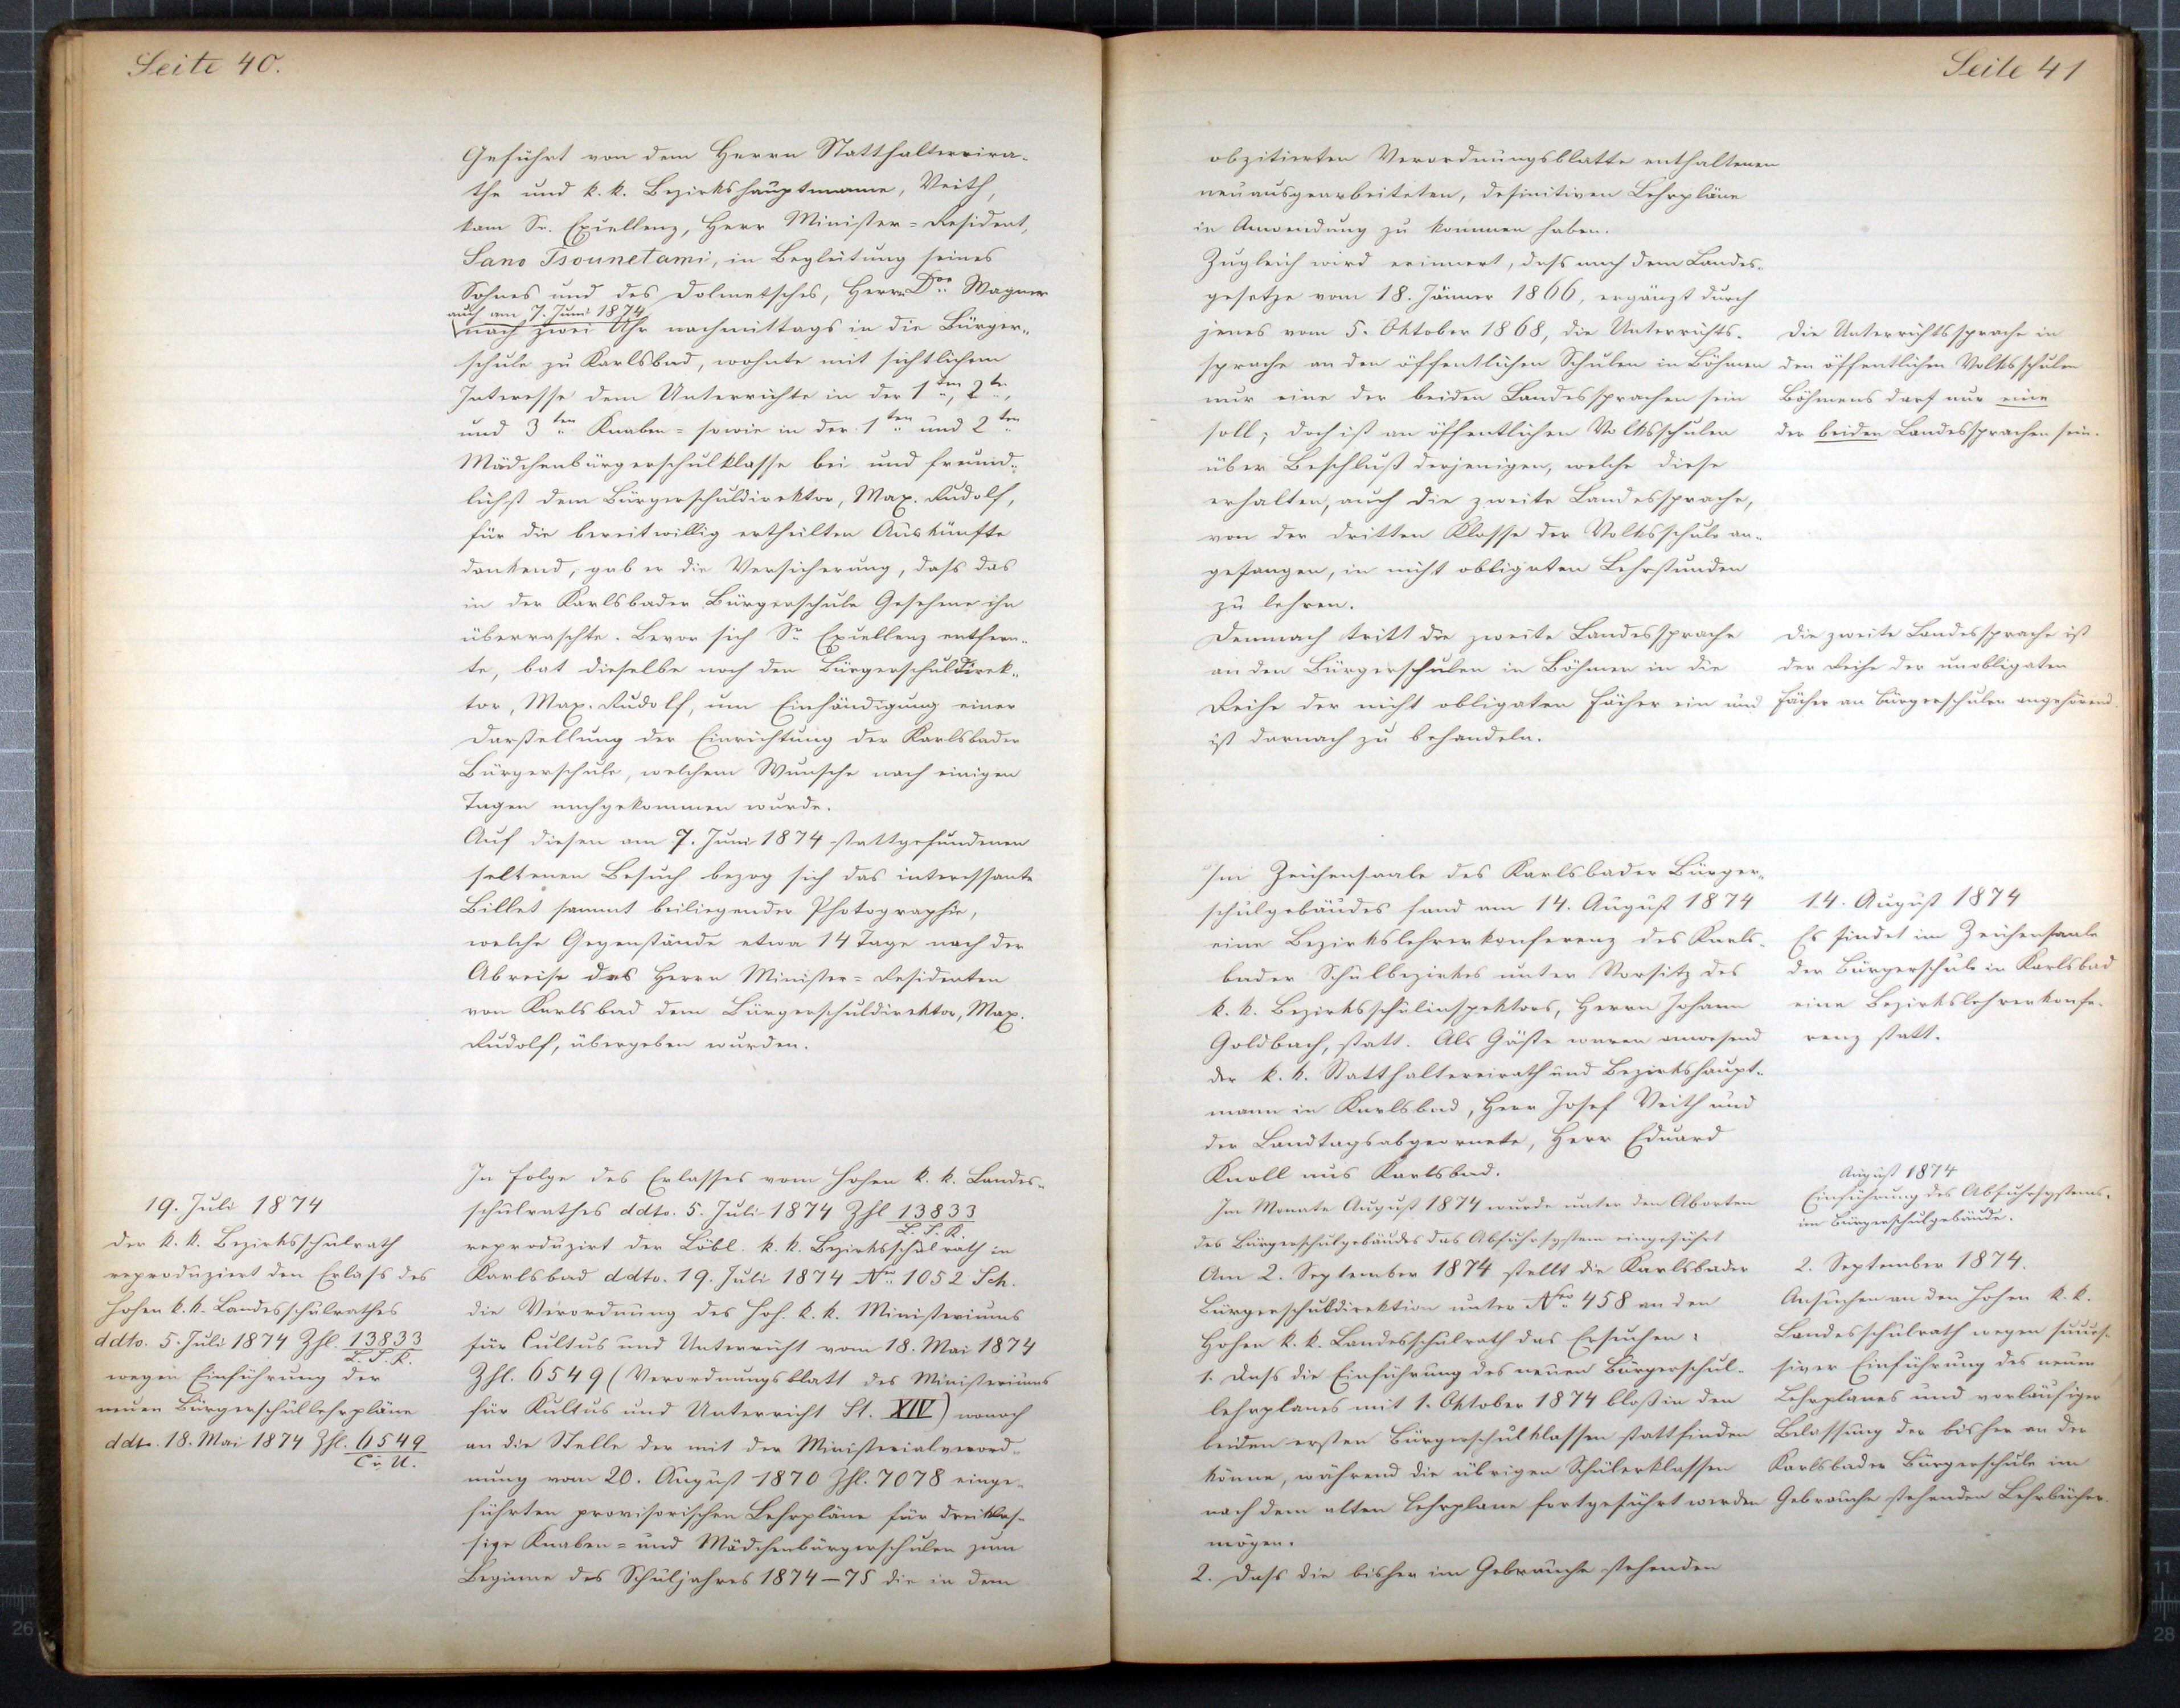 Seite 40.
Geführt von dem Herrn Statthaltereira-
the und k. k. Bezirkshauptmanne, Veith,
kam Sr. Exzellenz, Herr Minister=Resident,
Sano Tsounetami, in Begleitung seines
Sohnes und des Dolmetsches, Herrn Drs. Wagner
auch am 7. Juni 1874
nach zwei Uhr nachmittags in die Bürger-
schule zu Karlsbad, wohnte mit sichtlichem
Interesse dem Unterrichte in der 1ten, 2ten,
und 3ten Knaben= sowie in der 1ten und 2ten
Mädchenbürgerschulklasse bei und freund-
lichst dem Bürgerschuldirektor, Max. Rudolf,
für die bereitwillig ertheilten Auskünfte
dankend, gab er die Versicherung, dass das
in der Karlsbader Bürgerschule Gesehene ihn
überraschte. Bevor sich Sr. Exzellenz entfern-
te, bat dieselbe noch den Bürgerschuldirek-
tor, Max. Rudolf, um Einhändigung einer
Darstellung der Einrichtung der Karlsbader
Bürgerschule, welchem Wunsche nach einigen
Tagen nachgekommen wurde.
Auf diesen am 7. Juni 1874 stattgefundenen
seltenen Besuch bezog sich das interessante
Billet sammt beiliegender Photographie,
welche Gegenstände etwa 14 Tage nach der
Abreise des Herrn Minister=Residenten
von Karlsbad dem Bürgerschuldirektor, Max.
Rudolf, übergeben wurden.
19. Juli 1874
Der k. k. Bezirksschulrath
reproduziert den Erlass des
hohen k. k. Landesschulrathes
ddto. 5. Juli 1874 Zhl. 13833
L. S. R.
wegen Einführung der
neuen Bürgerschullehrpläne
ddto. 18. Mai 1874 Zhl. 6549
C. u. U.
In Folge des Erlasses vom hohen k. k. Landes-
schulrathes ddto. 5. Juli 1874 Zhl 13833
L. S. R.
reproduzirt der Löbl. k. k. Bezirksschulrath in
Karlsbad ddto. 19. Juli 1874 Nro. 1052 Sch.
die Verordnung des hoh. k. k. Ministeriums
für Cultus und Unterricht vom 18. Mai 1874
Zhl. 6549 (Verordnungsblatt des Ministeriums
für Kultus und Unterricht St. XIV) wonach
an die Stelle der mit der Ministerialverord-
nung vom 20. August 1870 Zhl. 7078 einge-
führten provisorischen Lehrpläne für dreiklas-
sige Knaben= und Mädchenbürgerschulen zum
Beginne des Schuljahres 1874–75 die in dem
Seite 41
obzitierten Verordnungsblatte enthaltenen
neuausgearbeiteten, definitiven Lehrpläne
in Anwendung zu kommen haben.
Zugleich wird erinnert, dass nach dem Landes-
gesetze vom 18. Jänner 1866, ergänzt durch
jenes vom 5. Oktober 1868, die Unterrichts-
sprache an den öffentlichen Schulen in Böhmen
nur eine der beiden Landessprachen sein
soll; doch ist an öffentlichen Volksschulen
über Beschluß derjenigen, welche diese
erhalten, auch die zweite Landessprache,
von der dritten Klasse der Volksschule an-
gefangen, in nicht obligaten Lehrstunden
zu lehren.
Die Unterrichtssprache in
den öffentlichen Volksschulen
Böhmens darf nur eine
der beiden Landessprachen sein.
Demnach tritt die zweite Landessprache
an den Bürgerschulen in Böhmen in die
Reihe der nicht obligaten Fächer ein und
ist darnach zu behandeln.
Die zweite Landessprache ist
der Reihe der unobligaten
Fächer an Bürgerschulen angehörend.
Im Zeichensaale des Karlsbader Bürger-
schulgebäudes fand am 14. August 1874
eine Bezirkslehrerkonferenz des Karls-
bader Schulbezirkes unter Vorsitz des
k. k. Bezirksschulinspektors, Herrn Johann
Goldbach, statt. Als Gäste waren anwesend
der k. k. Statthaltereirath und Bezirkshaupt-
mann in Karlsbad, Herr Josef Veith und
der Landtagsabgeornete, Herr Eduard
Knoll aus Karlsbad.
14. August 1874
Es findet im Zeichensaale
der Bürgerschule in Karlsbad
eine Bezirkslehrerkonfe-
renz statt.
Im Monate August 1874 wurde unter den Aborten
des Bürgerschulgebäudes das Abfuhrsystem eingeführt
August 1874
Einführung des Abfuhrsystems
im Bürgerschulgebäude.
Am 2. September 1874 stellt die Karlsbader
Bürgerschuldirektion unter Nro. 458 an den
Hohen k. k. Landesschulrath das Ersuchen:
1. Dass die Einführung des neuen Bürgerschul-
lehrplanes mit 1. Oktober 1874 bloß in den
beiden ersten Bürgerschulklassen stattfinden
könne, während die übrigen Schülerklassen
nach dem alten Lehrplane fortgeführt werden
mögen.
2. Dass die bisher im Gebrauche stehenden
2. September 1874.
Ansuchen an den hohen k. k.
Landesschulrath wegen succes-
siver Einführung des neuen
Lehrplanes und vorläufiger
Belassung der bisher an der
Karlsbader Bürgerschule im
Gebrauche stehenden Lehrbücher.
26
11
28